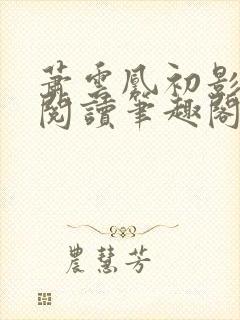 蕭雲鳳初影
閱讀筆趣閣
農慧芳